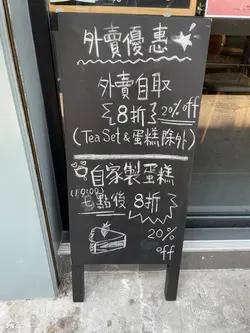 外賣優惠
外賣自取
8折 20% off
(Tea Set & 蛋糕除外)
自家製蛋糕
(20:00)
七點後 8折
20%
off